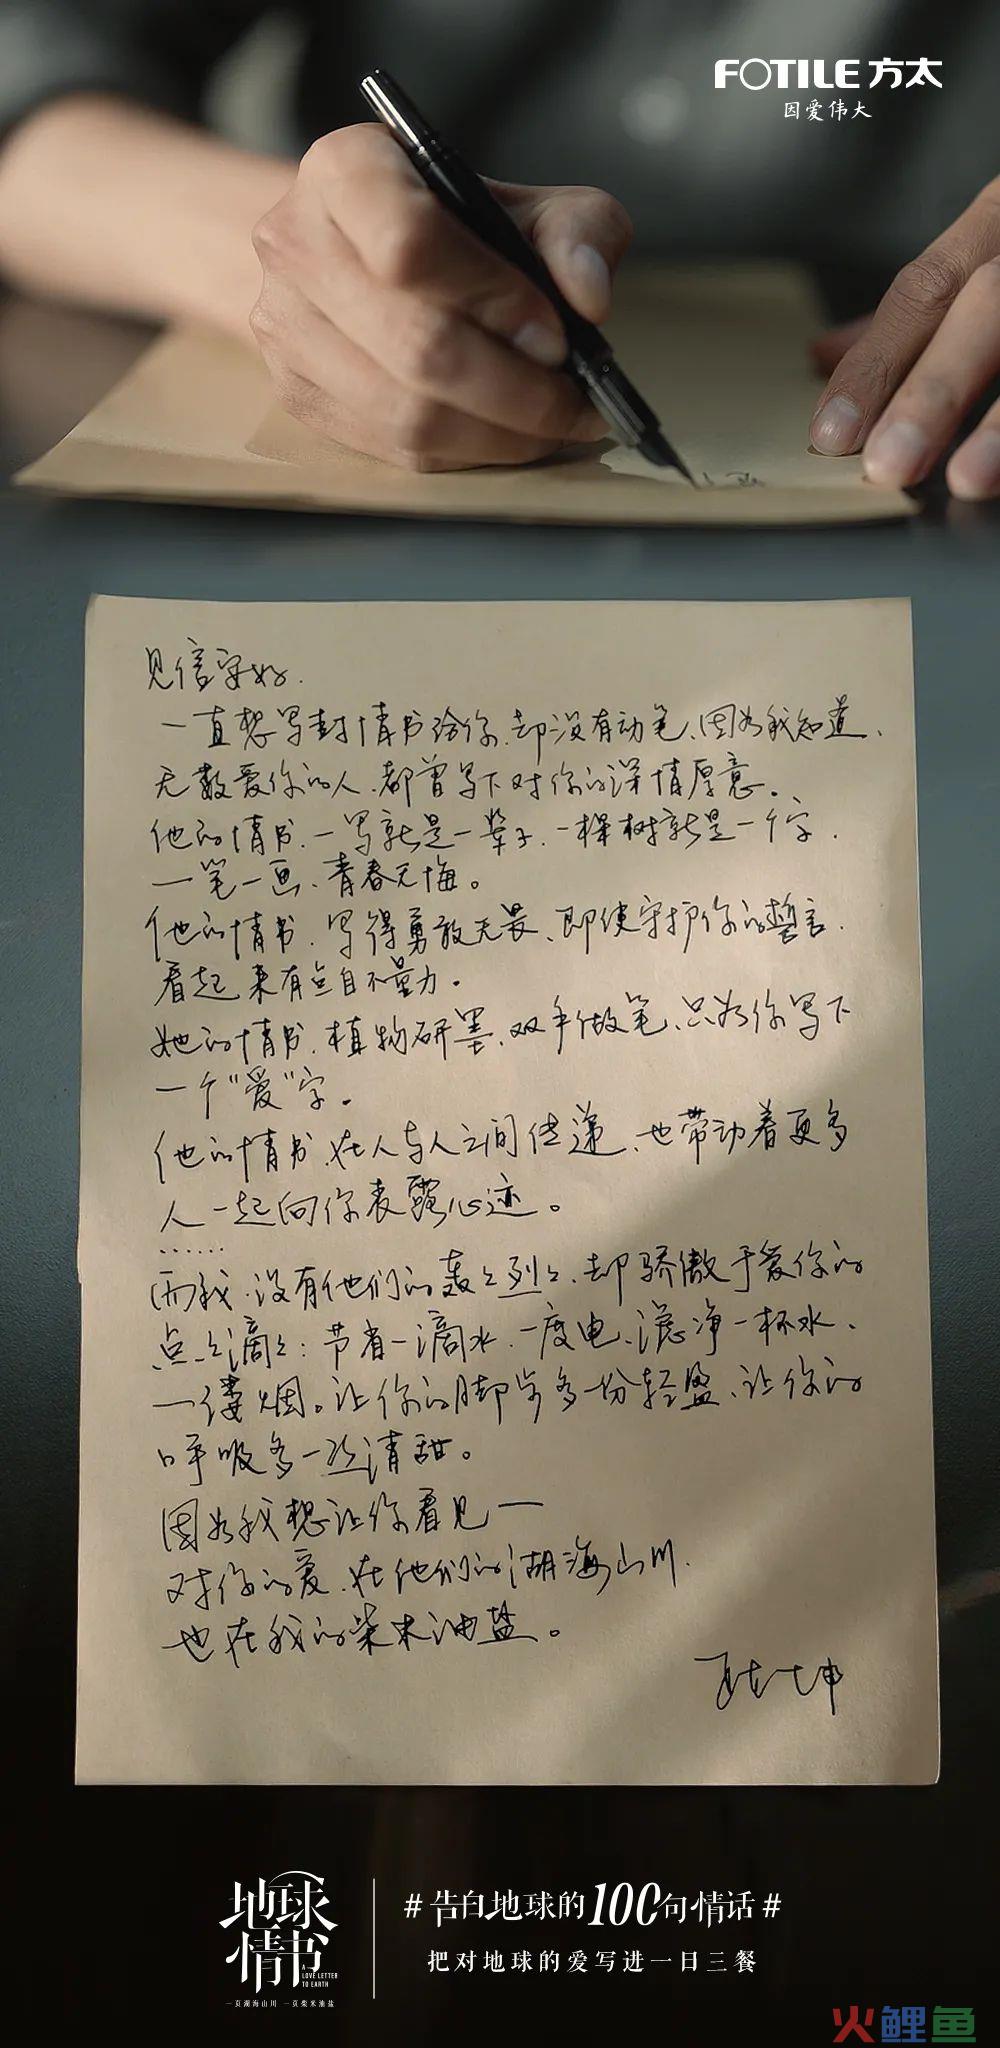 FOTILE 方太
因爱伟大
见信字好.
一直想写封情书给你、却没有动笔、因为我知道、
无数爱你的人、都曾写下对你的深情厚意。
他的情书、一写就是一辈子、一棵树就是一个字、
一笔一画、青春无悔。
他的情书、写得勇敢无畏、即使守护你的誓言、
看起来有点自不量力。
她的情书、植物研墨、双手做笔、只为你写下
一个“爱”字。
他的情书、在人与人之间传递、也带动着更多
人一起向你表露心迹。
……
而我、没有他们的轰轰烈烈、却骄傲于爱你的
点点滴滴：节省一滴水、一度电、滤净一杯水、
一缕烟。让你的脚步多一份轻盈、让你的
呼吸多一丝清甜。
因为我想让你看见一
对你的爱、在他们的湖海山川、
也在我的柴米油盐。
地球
情书
A
LOVE LETTER
TO EARTH
一页湖海山川 一页柴米油盐
#告白地球的100句情话#
把对地球的爱写进一日三餐
火鲤鱼